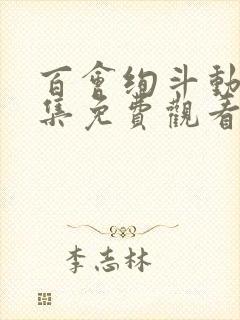 百會绚斗動
集免費觀看
李志林